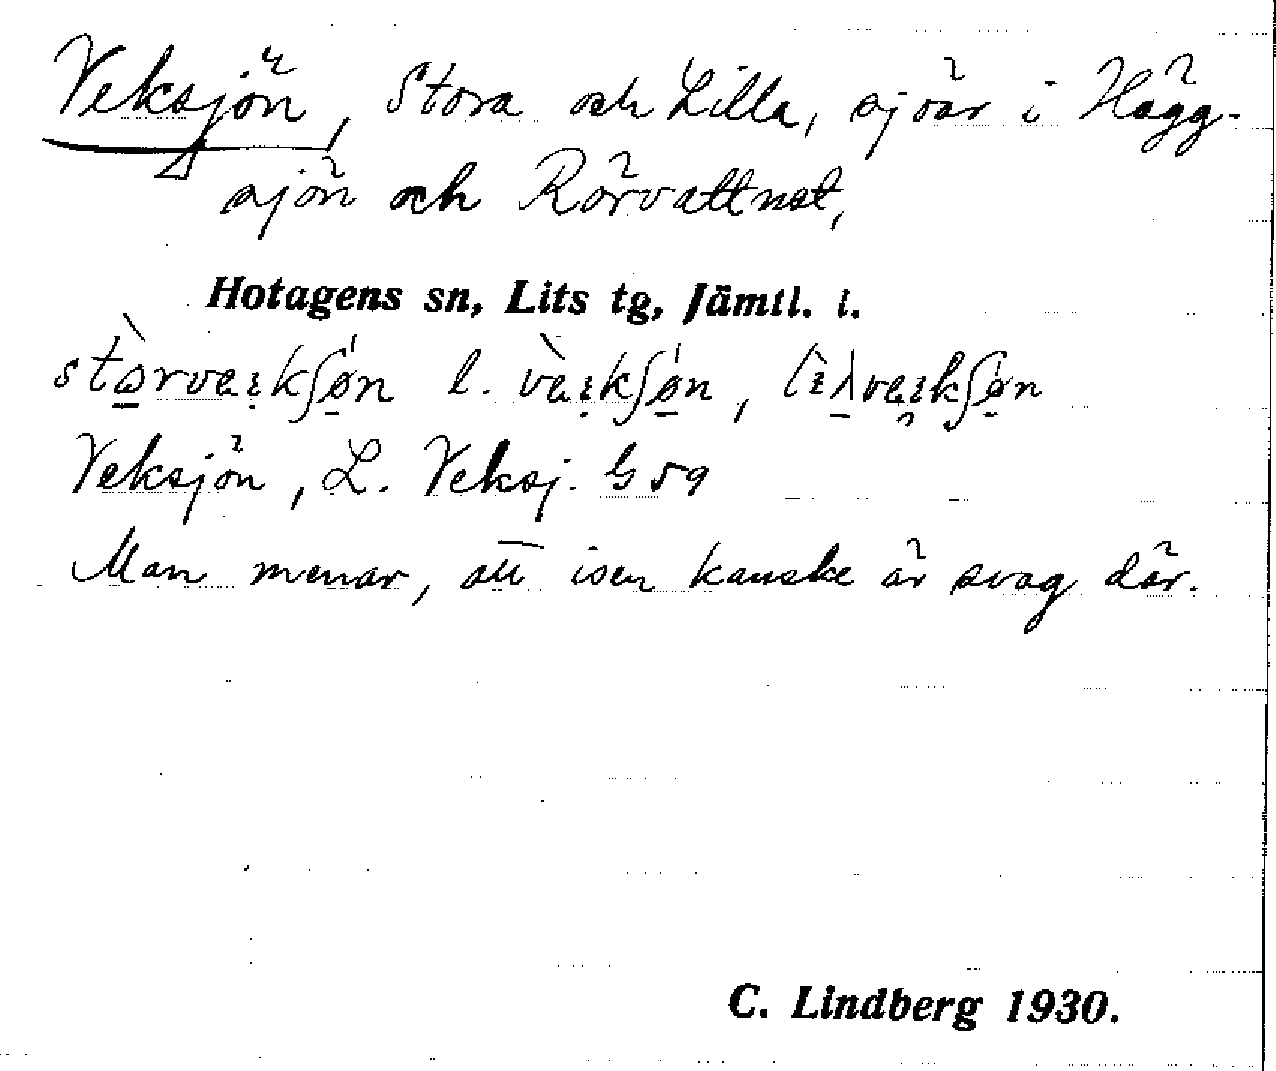 Veksjön, Stora och Lilla, sjöar i Hägg-
sjön och Rörvattnet,
Hotagens sn, Lits tg, Jämtl. l.
l.
Veksjön, L. Veksj. G 59
Man menar, att isen kanske är svag där.
C. Lindberg 1930.